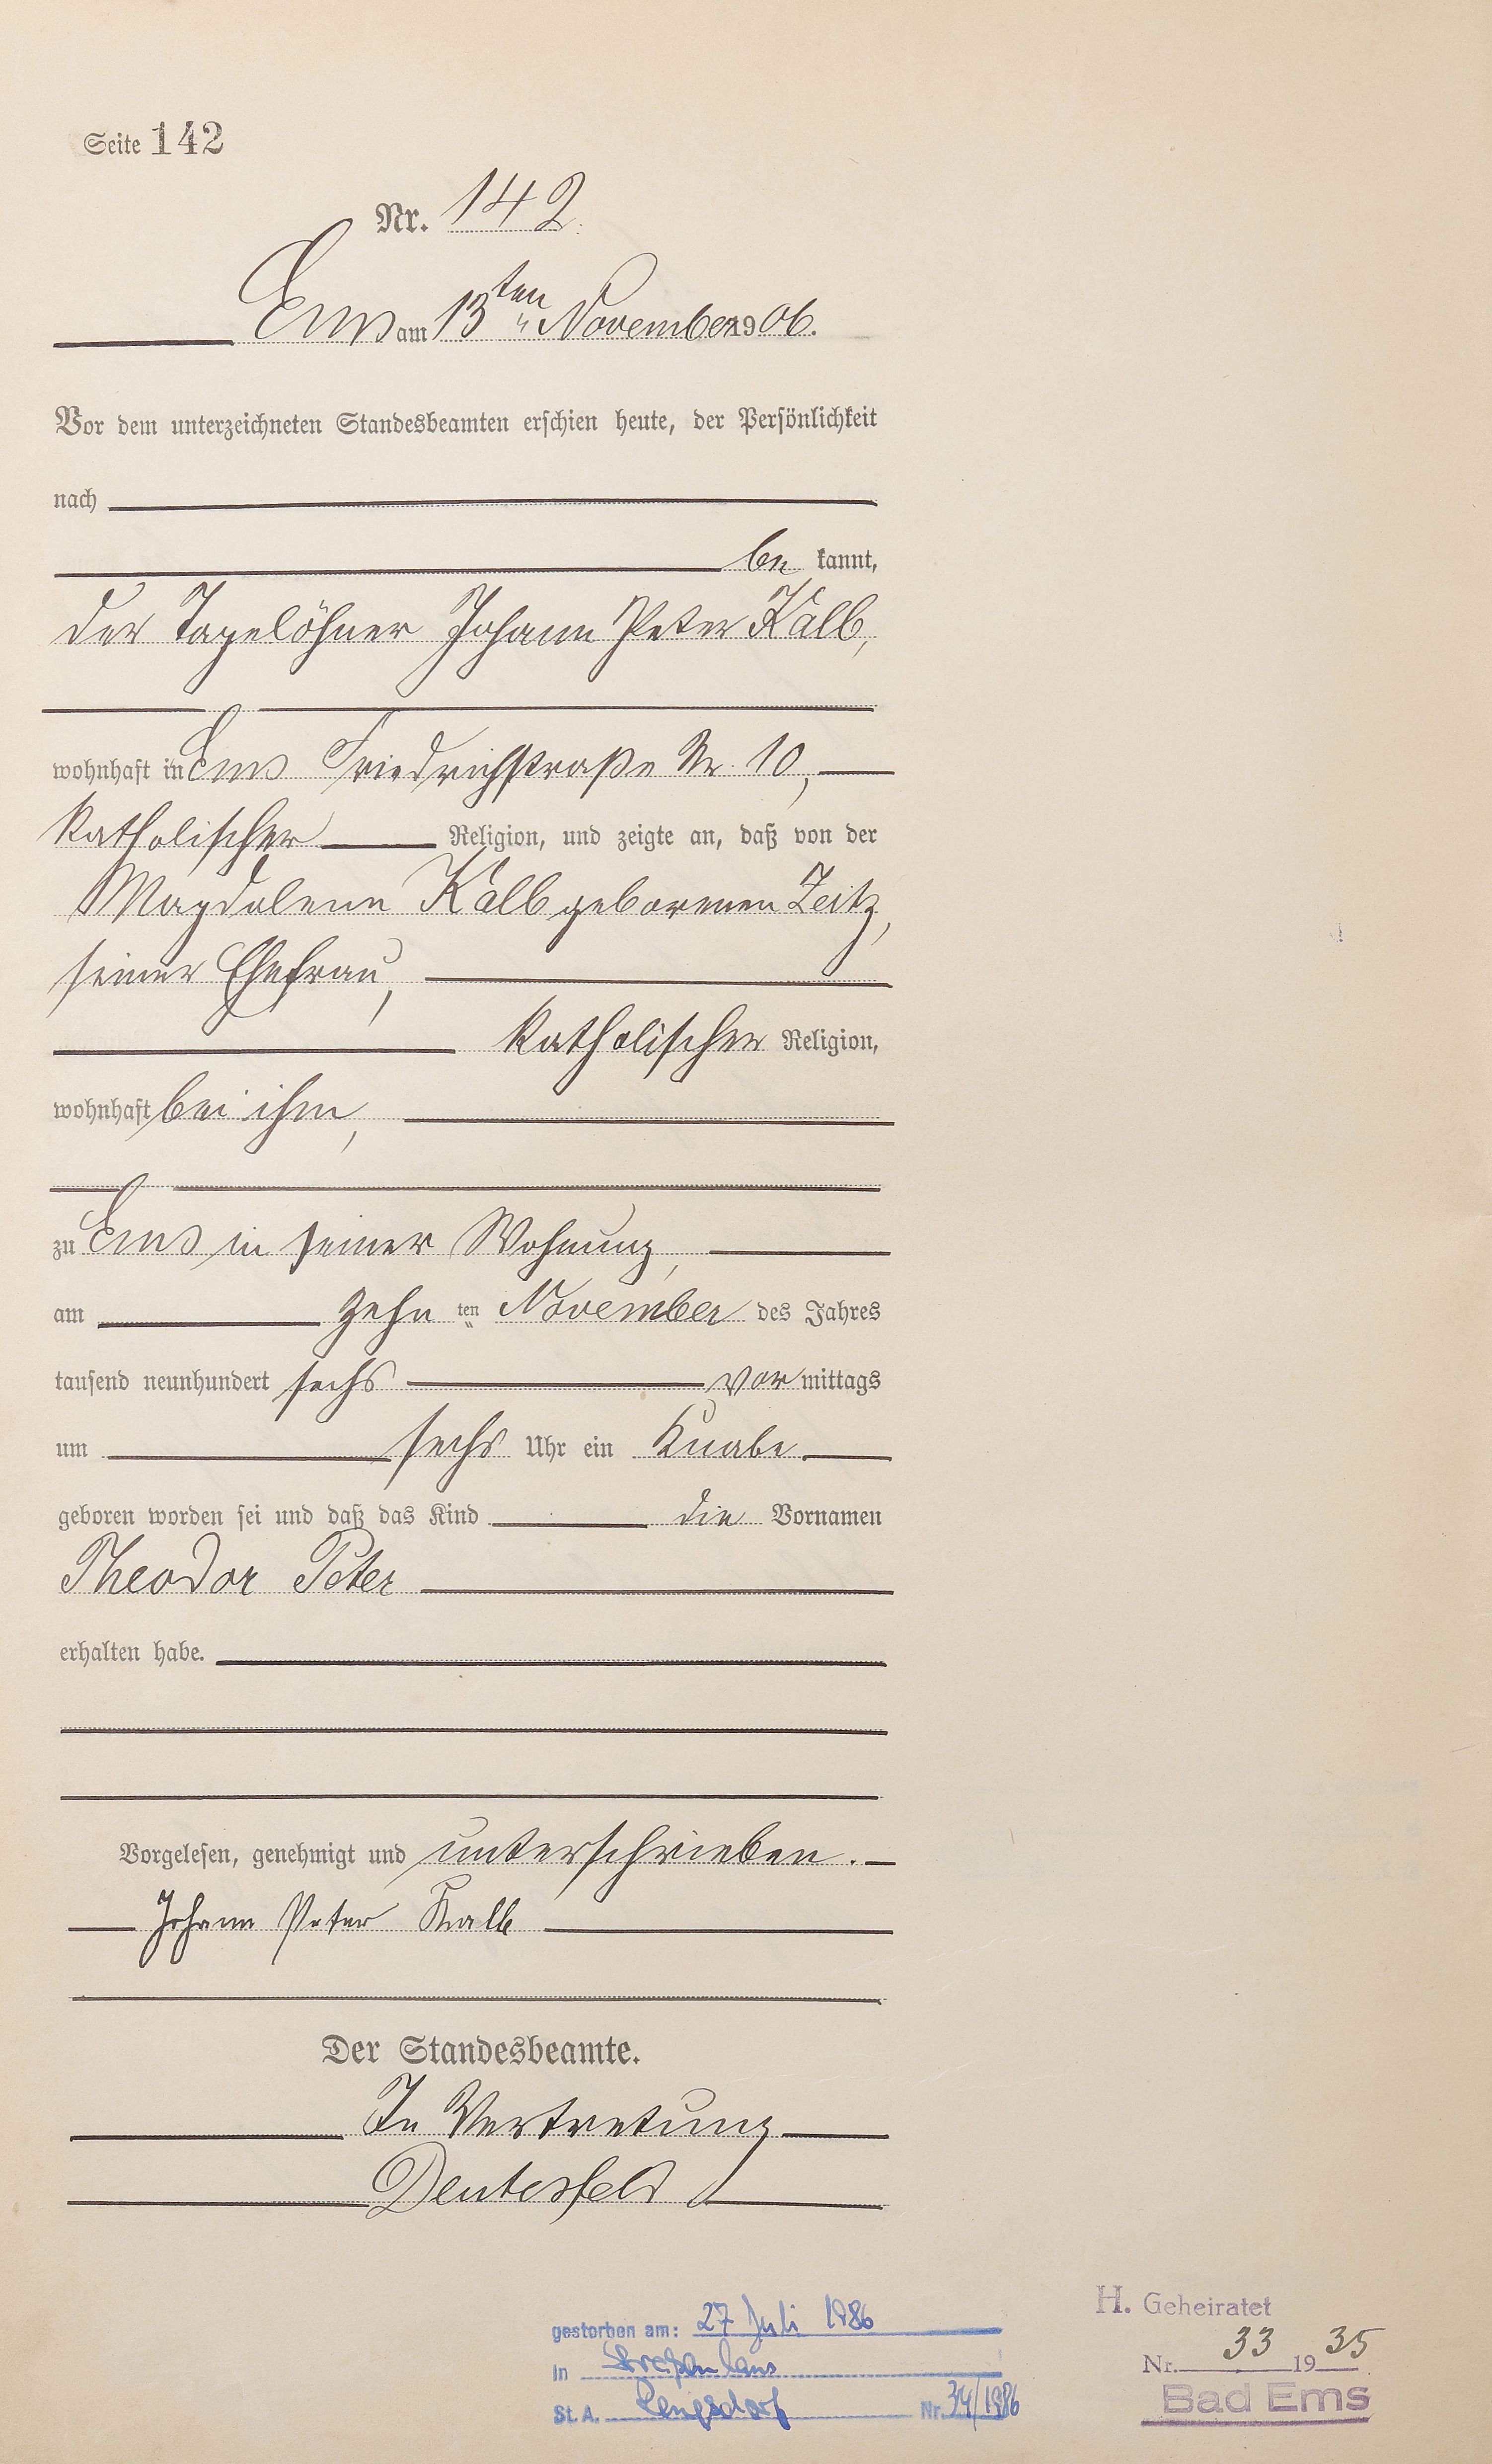 Seite 142
Nr. 142.
Ems am 13ten November 1906.
Vor dem unterzeichneten Standesbeamten erschien heute, der Persönlichkeit
nach
be kannt,
der Tagelöhner Johann Peter Kalb,
wohnhaft in Ems Friedrichstraße Nr. 10,
katholischer Religion, und zeigte an, daß von der
Magdalena Kalb geborenen Zeitz,
seiner Ehefrau,
katholischer Religion,
wohnhaft bei ihm,
zu Ems in seiner Wohnung,
am zehn ten November des Jahres
tausend neunhundert sechs vor mittags
um sechs Uhr ein Knabe
geboren worden sei und daß das Kind die Vornamen
Theodor Peter
erhalten habe.
Vorgelesen, genehmigt und unterschrieben.
Johann Peter Kalb
Der Standesbeamte.
In Vertretung
gestorben am: 27 Juli 1986
in Straßenhaus
St. A. Rengsdorf Nr. 34/1986
H. Geheiratet
Nr. 33 1935
Bad Ems